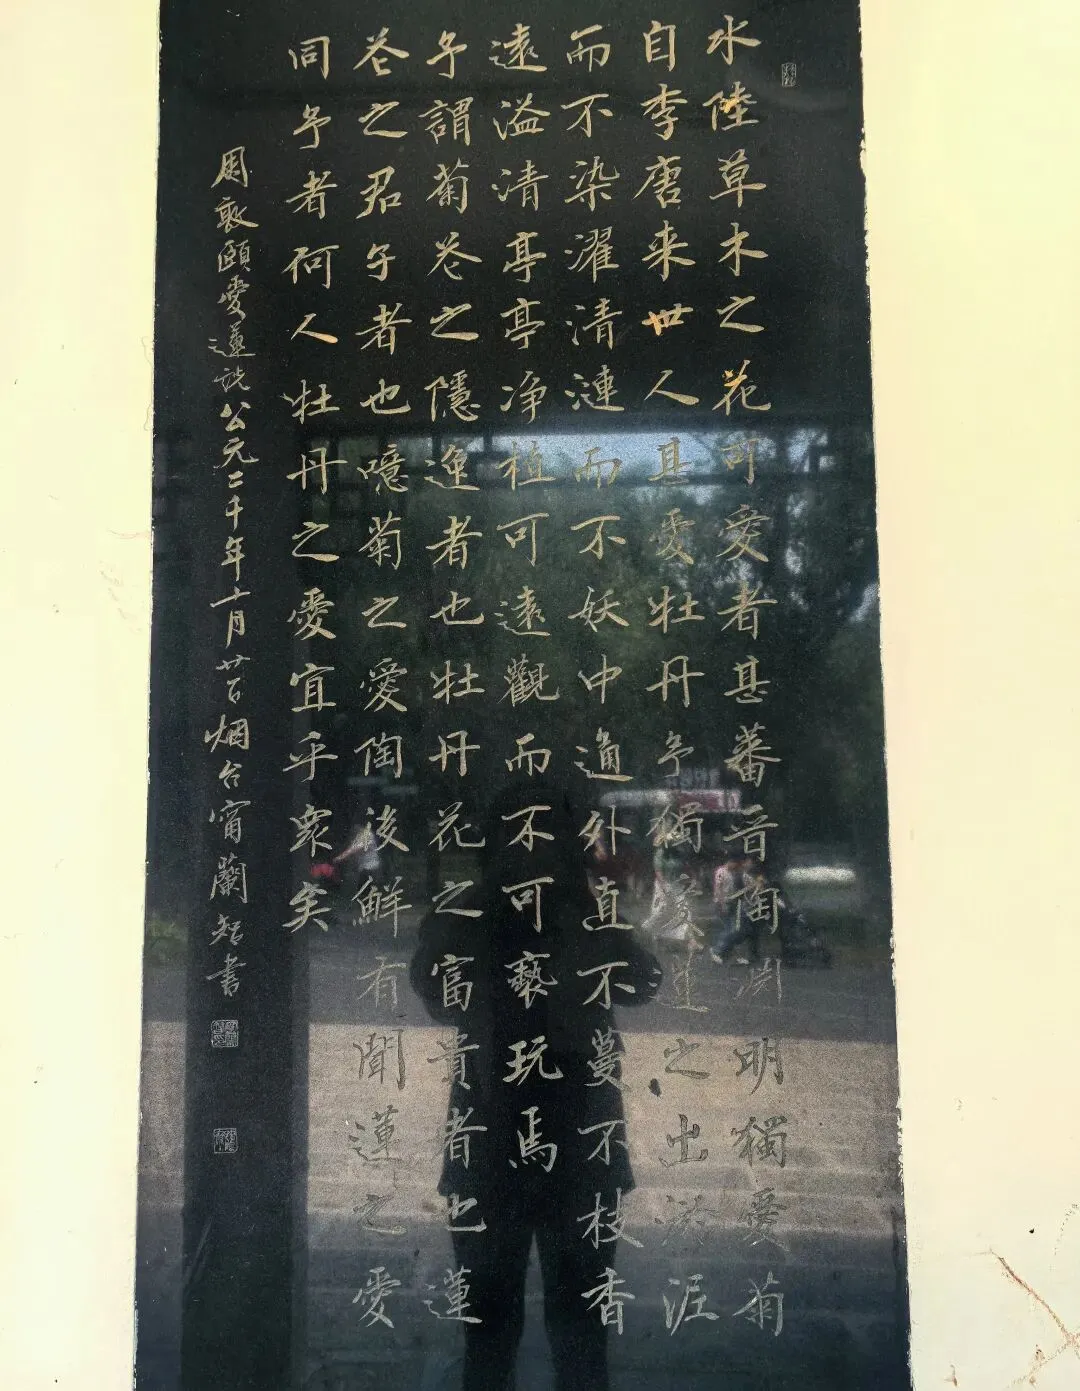 水陸草木之花可愛者甚蕃晋陶渊明獨愛菊
自李唐来世人甚愛牡丹予獨愛蓮之出淤泥
而不染濯清漣而不妖中通外直不蔓不枝香
遠溢清亭亭净植可遠觀而不可褻玩焉
予謂菊花之隱逸者也牡丹花之富貴者也蓮
花之君子者也噫菊之愛陶後鮮有聞蓮之愛
同予者何人牡丹之愛宜乎衆矣
周敦頤愛蓮説公元二千年十一月廿一日烟台甯蘭智書